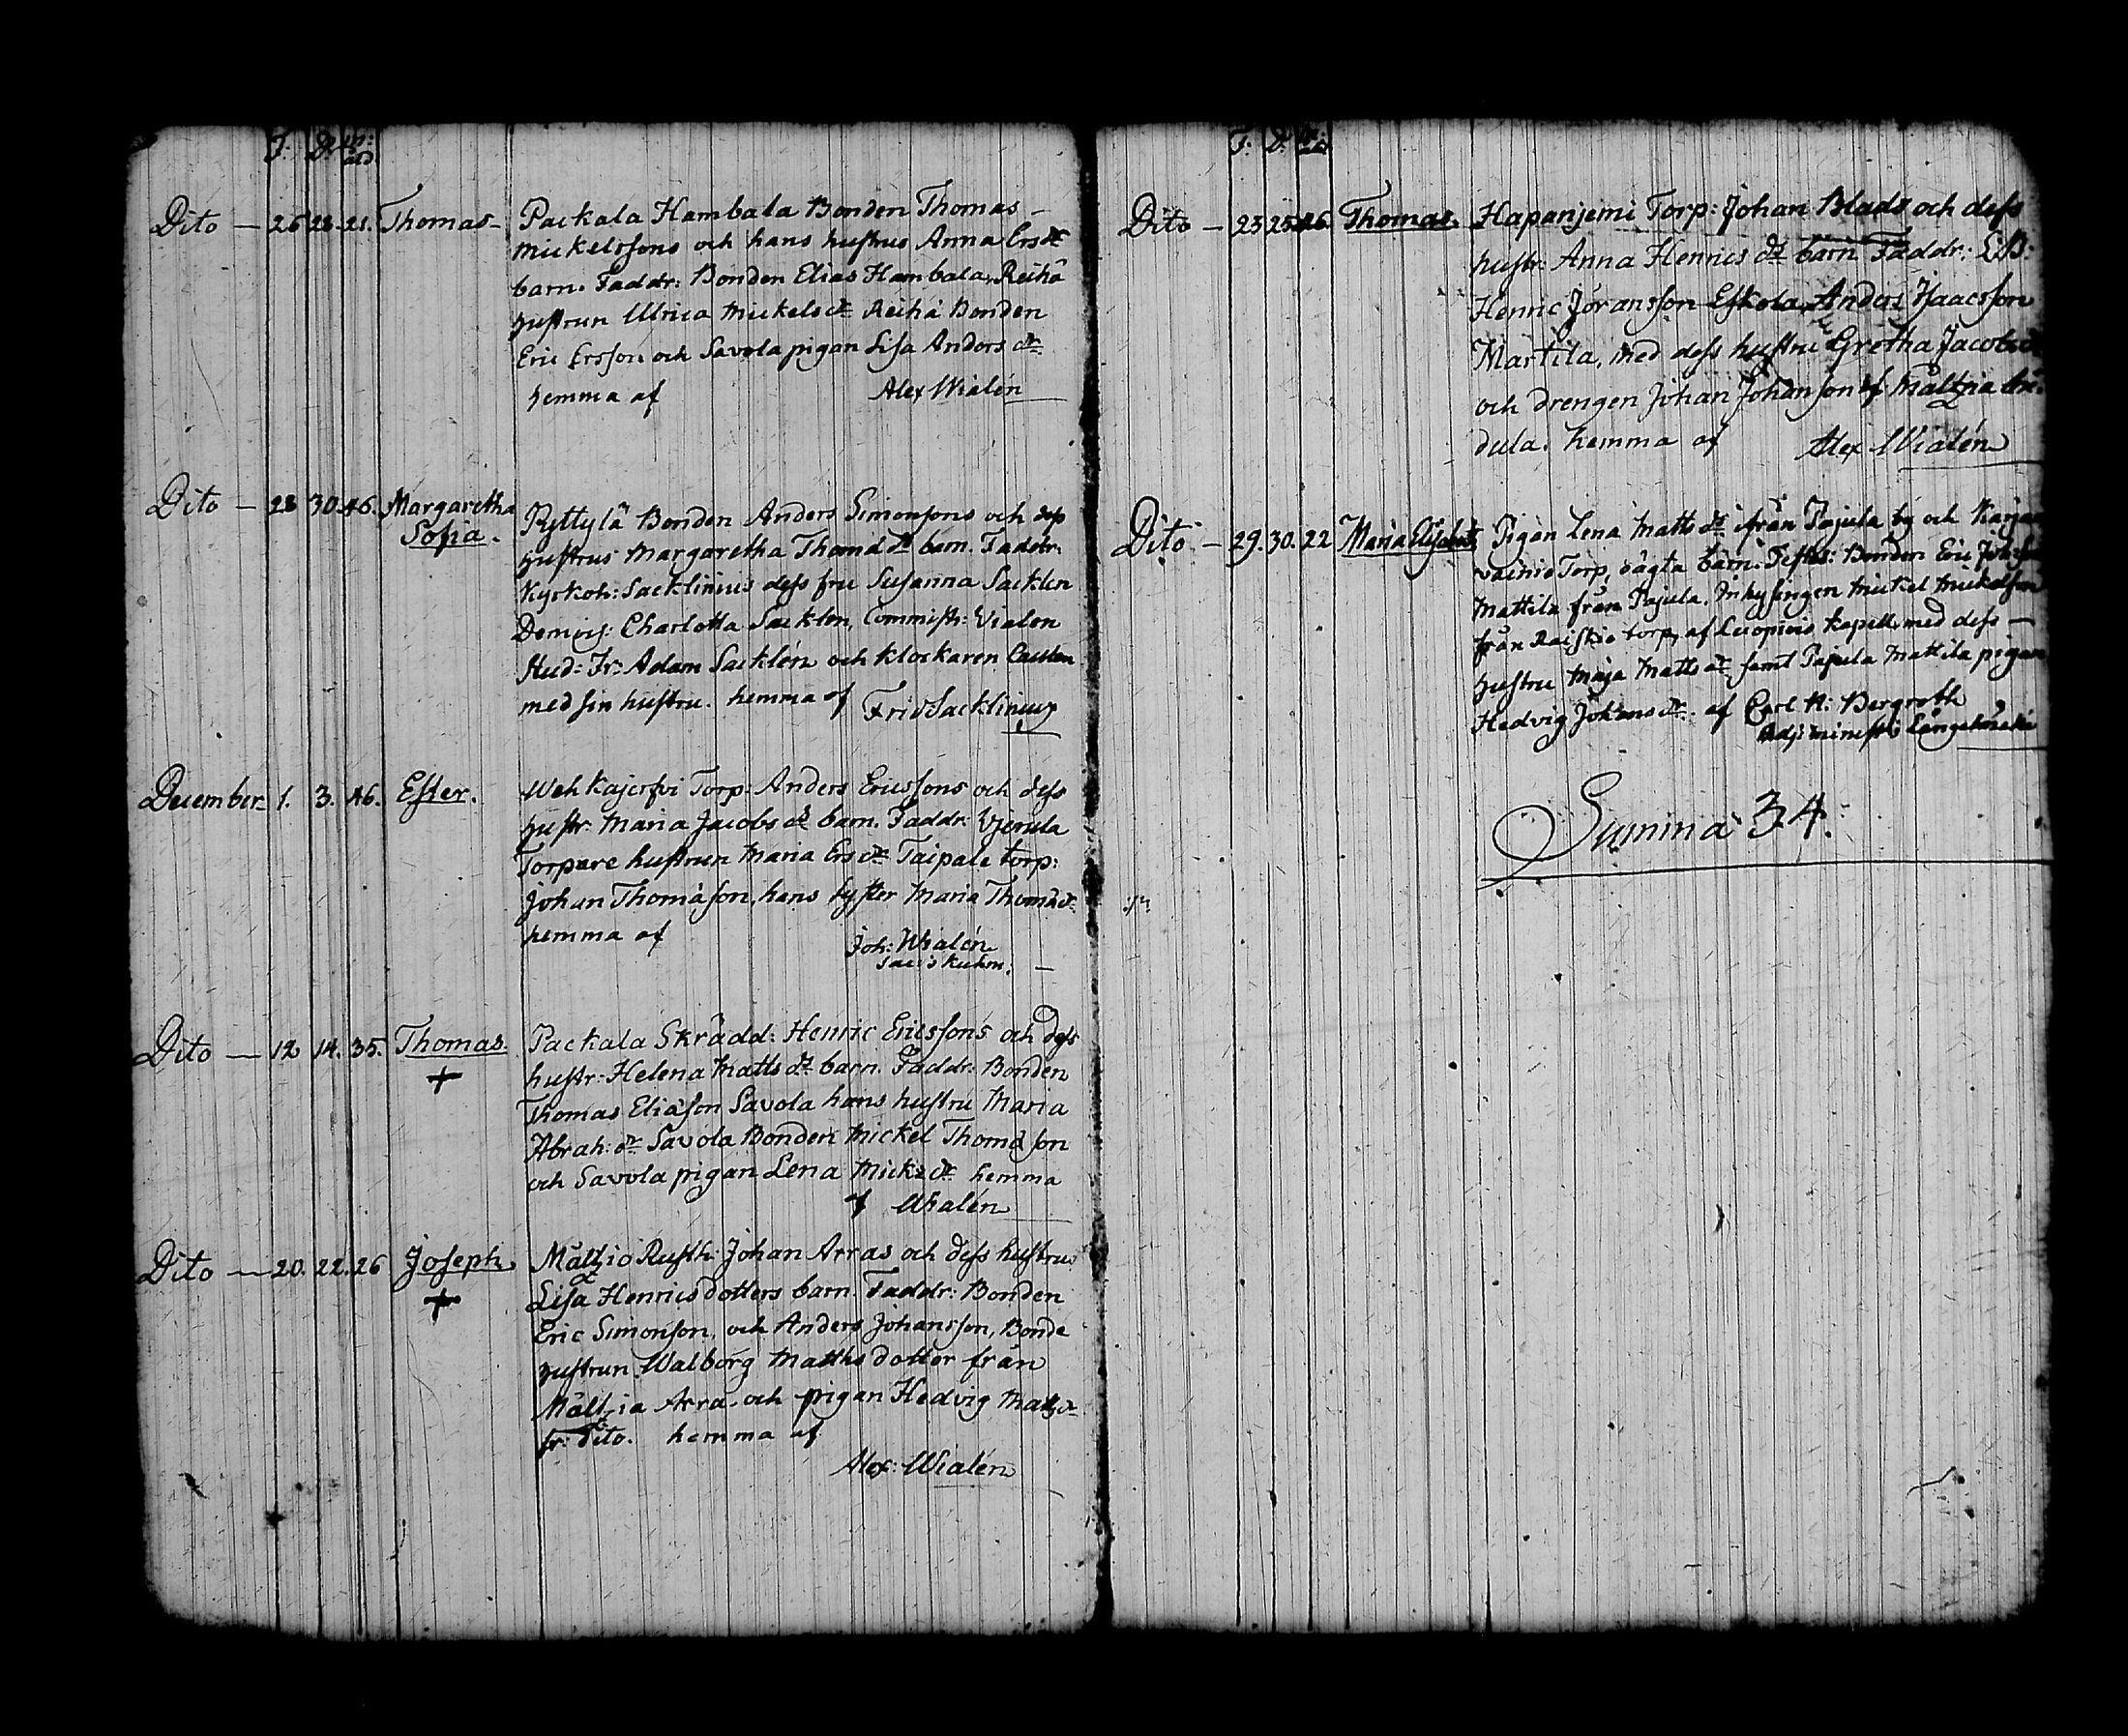 F: D: M: ård
Dito — 26 28. 21. Thomas — Packala Hambala Bonden Thomas —
Mickelssons och hans hustrus Anna Ersdr
barn. Faddr: Bonden Elias Hambala, Reihä
hustrun Ulrica Mickelsdr Reihä Bonden
Eric Ersson och Savola pigan Lisa Andersdr
hemma af Alex Wialén
Dito — 28 30. 46. Margaretha Sofia. Pyttylä Bonden Anders Simonsons och dess
hustrus Margaretha Thomædr barn. Faddr:
Kyrkoh: Sacklinius dess fru Susanna Sacklen
Demois: Charlotta Sacklen, Commistr: Vialen
Stud: Fr: Adam Sacklén och Klockaren
med sin hustru. hemma af Frid Sacklinius
December 1. 3. 46. Ester. Wehkajerfvi Torp: Anders Ericssons och dess
hustr: Maria Jacobs dr barn. Faddr: Vjerula
Torpare hustrun Maria Ersdr Taipale torp:
Johan Thomason, hans syster Maria Thomædr
hemma af Joh: Wialén
Sac: i Kuhm: —
Dito — 12. 14. 35. Thomas. Packala Skrädd: Henric Ericssons och dess
+ hustr: Helena Matts dr barn. Faddr: Bonden
Thomas Eliason Savola hans hustru Maria
Abrah: dr Savola Bonden Mickel Thomason
och Savola pigan Lena Micks dr hemma
af Wialén
Dito — 20. 22. 26 Joseph. Mältzio Rusth: Johan Arras och dess hustrus
+ Lisa Henricsdotters barn. Faddr: Bonden
Eric Simonson, och Anders Johansson, Bonde
hustrun Walborg Matthsdotter från
Mältzia Arra, och pigan Hedvig Mattsdr
fr: Dito. hemma af
Alex: Wialén
F: D:
Dito — 25 25 46. Thomas. Hapanjemi Torp: Johan Blads och dess
hustr: Anna Henrics dr barn Faddr: LB:
Henric Jöransson Eskola, Anders Isaacsson
Martila, med dess hustru Gretha Jacobsdr
och drengen Johan Johanson af Mältzia
dula. hemma af Alex Wialén
Dito — 29. 30. 22 Maria Elisabet Pigan Lena Matts dr ifrån Pajula by och Karja
vainio Torp, oägta barn. Testes: Bonden Eric
Mattila från Pajula. Inhysingen Mickel Mickelson
från Raiskio torp, af Luopiois Kapell med dess —
hustru Maja Matts dr samt Pajula Mattila pigan
Hedvig Johansdr. af Carl H: Bergroth
Adj: minist: i Längelmäki
Summa 34.